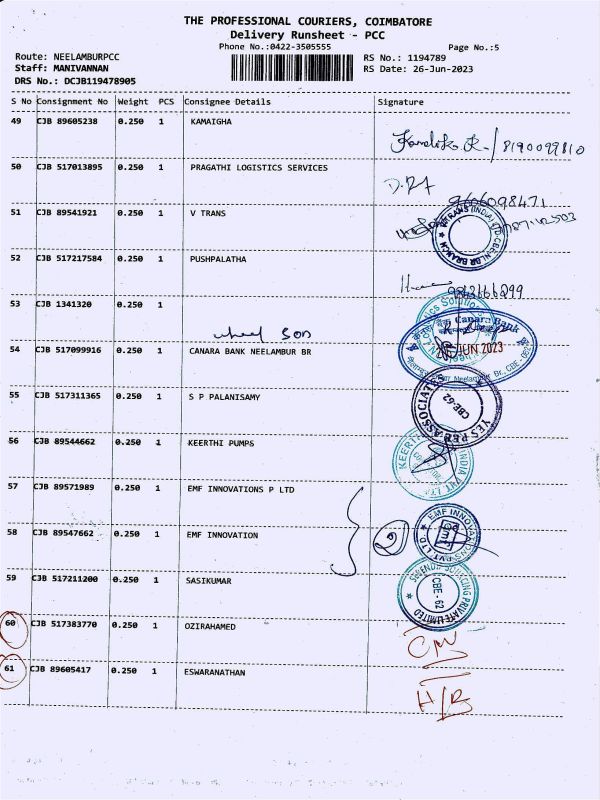 THE PROFESSIONAL COURIERS, COIMBATORE
Delivery Runsheet - PCC
Phone No.:0422-3505555
Page No.:5
Route: NEELAMBURPCC
RS No.: 1194789
Staff: MANIVANNAN
RS Date: 26-Jun-2023
DRS No.: DCJB119478905
S No Consignment No Weight PCS Consignee Details Signature
49 CJB 89605238 0.250 1 KAMAIGHA
8190099810
50 CJB 517013895 0.250 1 PRAGATHI LOGISTICS SERVICES
9606098471
51 CJB 89541921 0.250 1 V TRANS
52 CJB 517217584 0.250 1 PUSHPALATHA
53 CJB 1341320 0.250 1
wheel son
54 CJB 517099916 0.250 1 CANARA BANK NEELAMBUR BR
Canara Bank
JUN 2023
55 CJB 517311365 0.250 1 S P PALANISAMY
CBE-62
56 CJB 89544662 0.250 1 KEERTHI PUMPS
57 CJB 89571989 0.250 1 EMF INNOVATIONS P LTD
58 CJB 89547662 0.250 1 EMF INNOVATION
EMF INNOVATIONS PVT. LTD.
emf
59 CJB 517211200 0.250 1 SASIKUMAR
CBE - 62
PRIVATE LIMITED
60 CJB 517383770 0.250 1 OZIRAHAMED
61 CJB 89605417 0.250 1 ESWARANATHAN